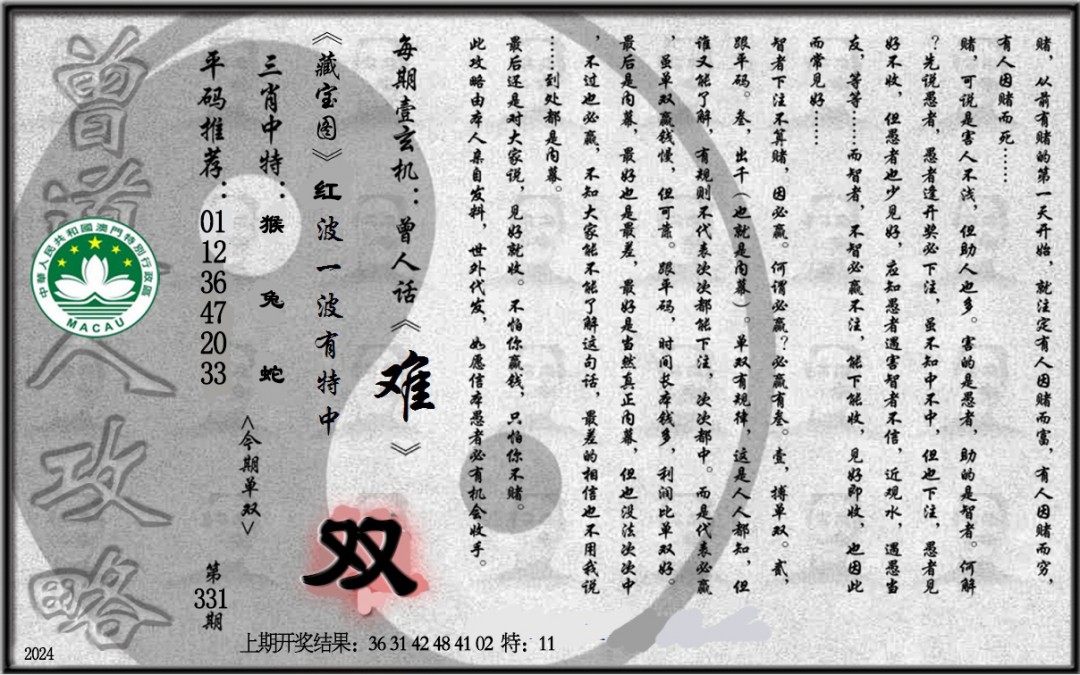 赌，从前有赌的第一天开始，就注定有人因赌而富，有人因赌而穷，
有人因赌而死……
赌，可说是害人不浅，但助人也多。害的是愚者，助的是智者。何解
？先说愚者，愚者逢开奖必下注，虽不知中不中，但也下注，愚者见
好不收，但愚者也少见好，应知愚者遇害智者不信，近观水，遇愚当
友，等等……而智者，不智必赢不注，能下能收，见好即收，也因此
而常见好……
智者下注不算赌，因必赢。何谓必赢？必赢有叁。壹，搏单双。贰，
跟平码。叁，出千（也就是内幕）。单双有规律，这是人人都知，但
谁又能了解，有规则不代表次次都能下注，次次都中。而是代表必赢
，虽单双赢钱慢，但可靠。跟平码，时间长本钱多，利润比单双好。
最后是内幕，最好也是最差，最好是当然真正内幕，但也没法次次中
，不过也必赢，不知大家能不能了解这句话，最差的相信也不用我说
……到处都是内幕。
最后还是对大家说，见好就收。不怕你赢钱，只怕你不赌。
此攻略由本人亲自发料，世外代发，如愿信本愚者必有机会收手。
每期壹玄机：曾人话《难》
《藏宝图》红波一波有特中
三肖中特：猴 兔 蛇
平码推荐：01 12 36 47 20 33
<今期单双>
双
第331期
曾道人攻略
中華人民共和國澳門特別行政區
MACAU
上期开奖结果：36 31 42 48 41 02 特：11
2024